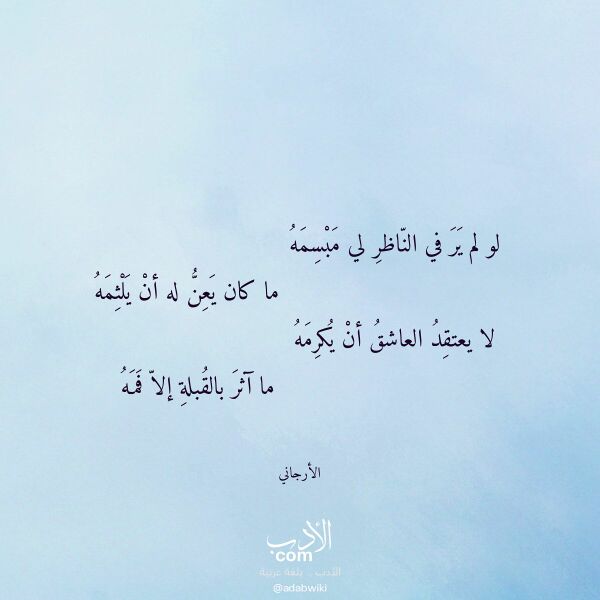 لو لم يَرَ في النّاظرِ لي مَبْسِمَهُ
ما كان يَعِنُّ له أنْ يَلْثِمَهُ
لا يعتقِدُ العاشقُ أنْ يُكرِمَهُ
ما آثرَ بالقُبلةِ إلاّ فَمَهُ
الأرجاني
الأدب
com
الأدب .. بلغة عربية
@adabwiki